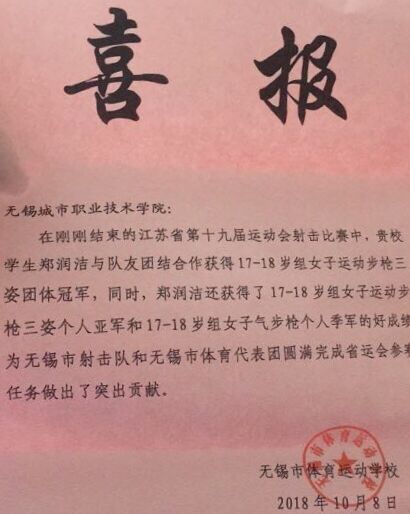 喜报
无锡城市职业技术学院：
在刚刚结束的江苏省第十九届运动会射击比赛中，贵校
学生郑润洁与队友团结合作获得17-18岁组女子运动步枪三
姿团体冠军，同时，郑润洁还获得了17-18岁组女子运动步
枪三姿个人亚军和17-18岁组女子气步枪个人季军的好成绩
为无锡市射击队和无锡市体育代表团圆满完成省运会参赛
任务做出了突出贡献。
无锡市体育运动学校
2018年10月8日
无锡市体育运动学校